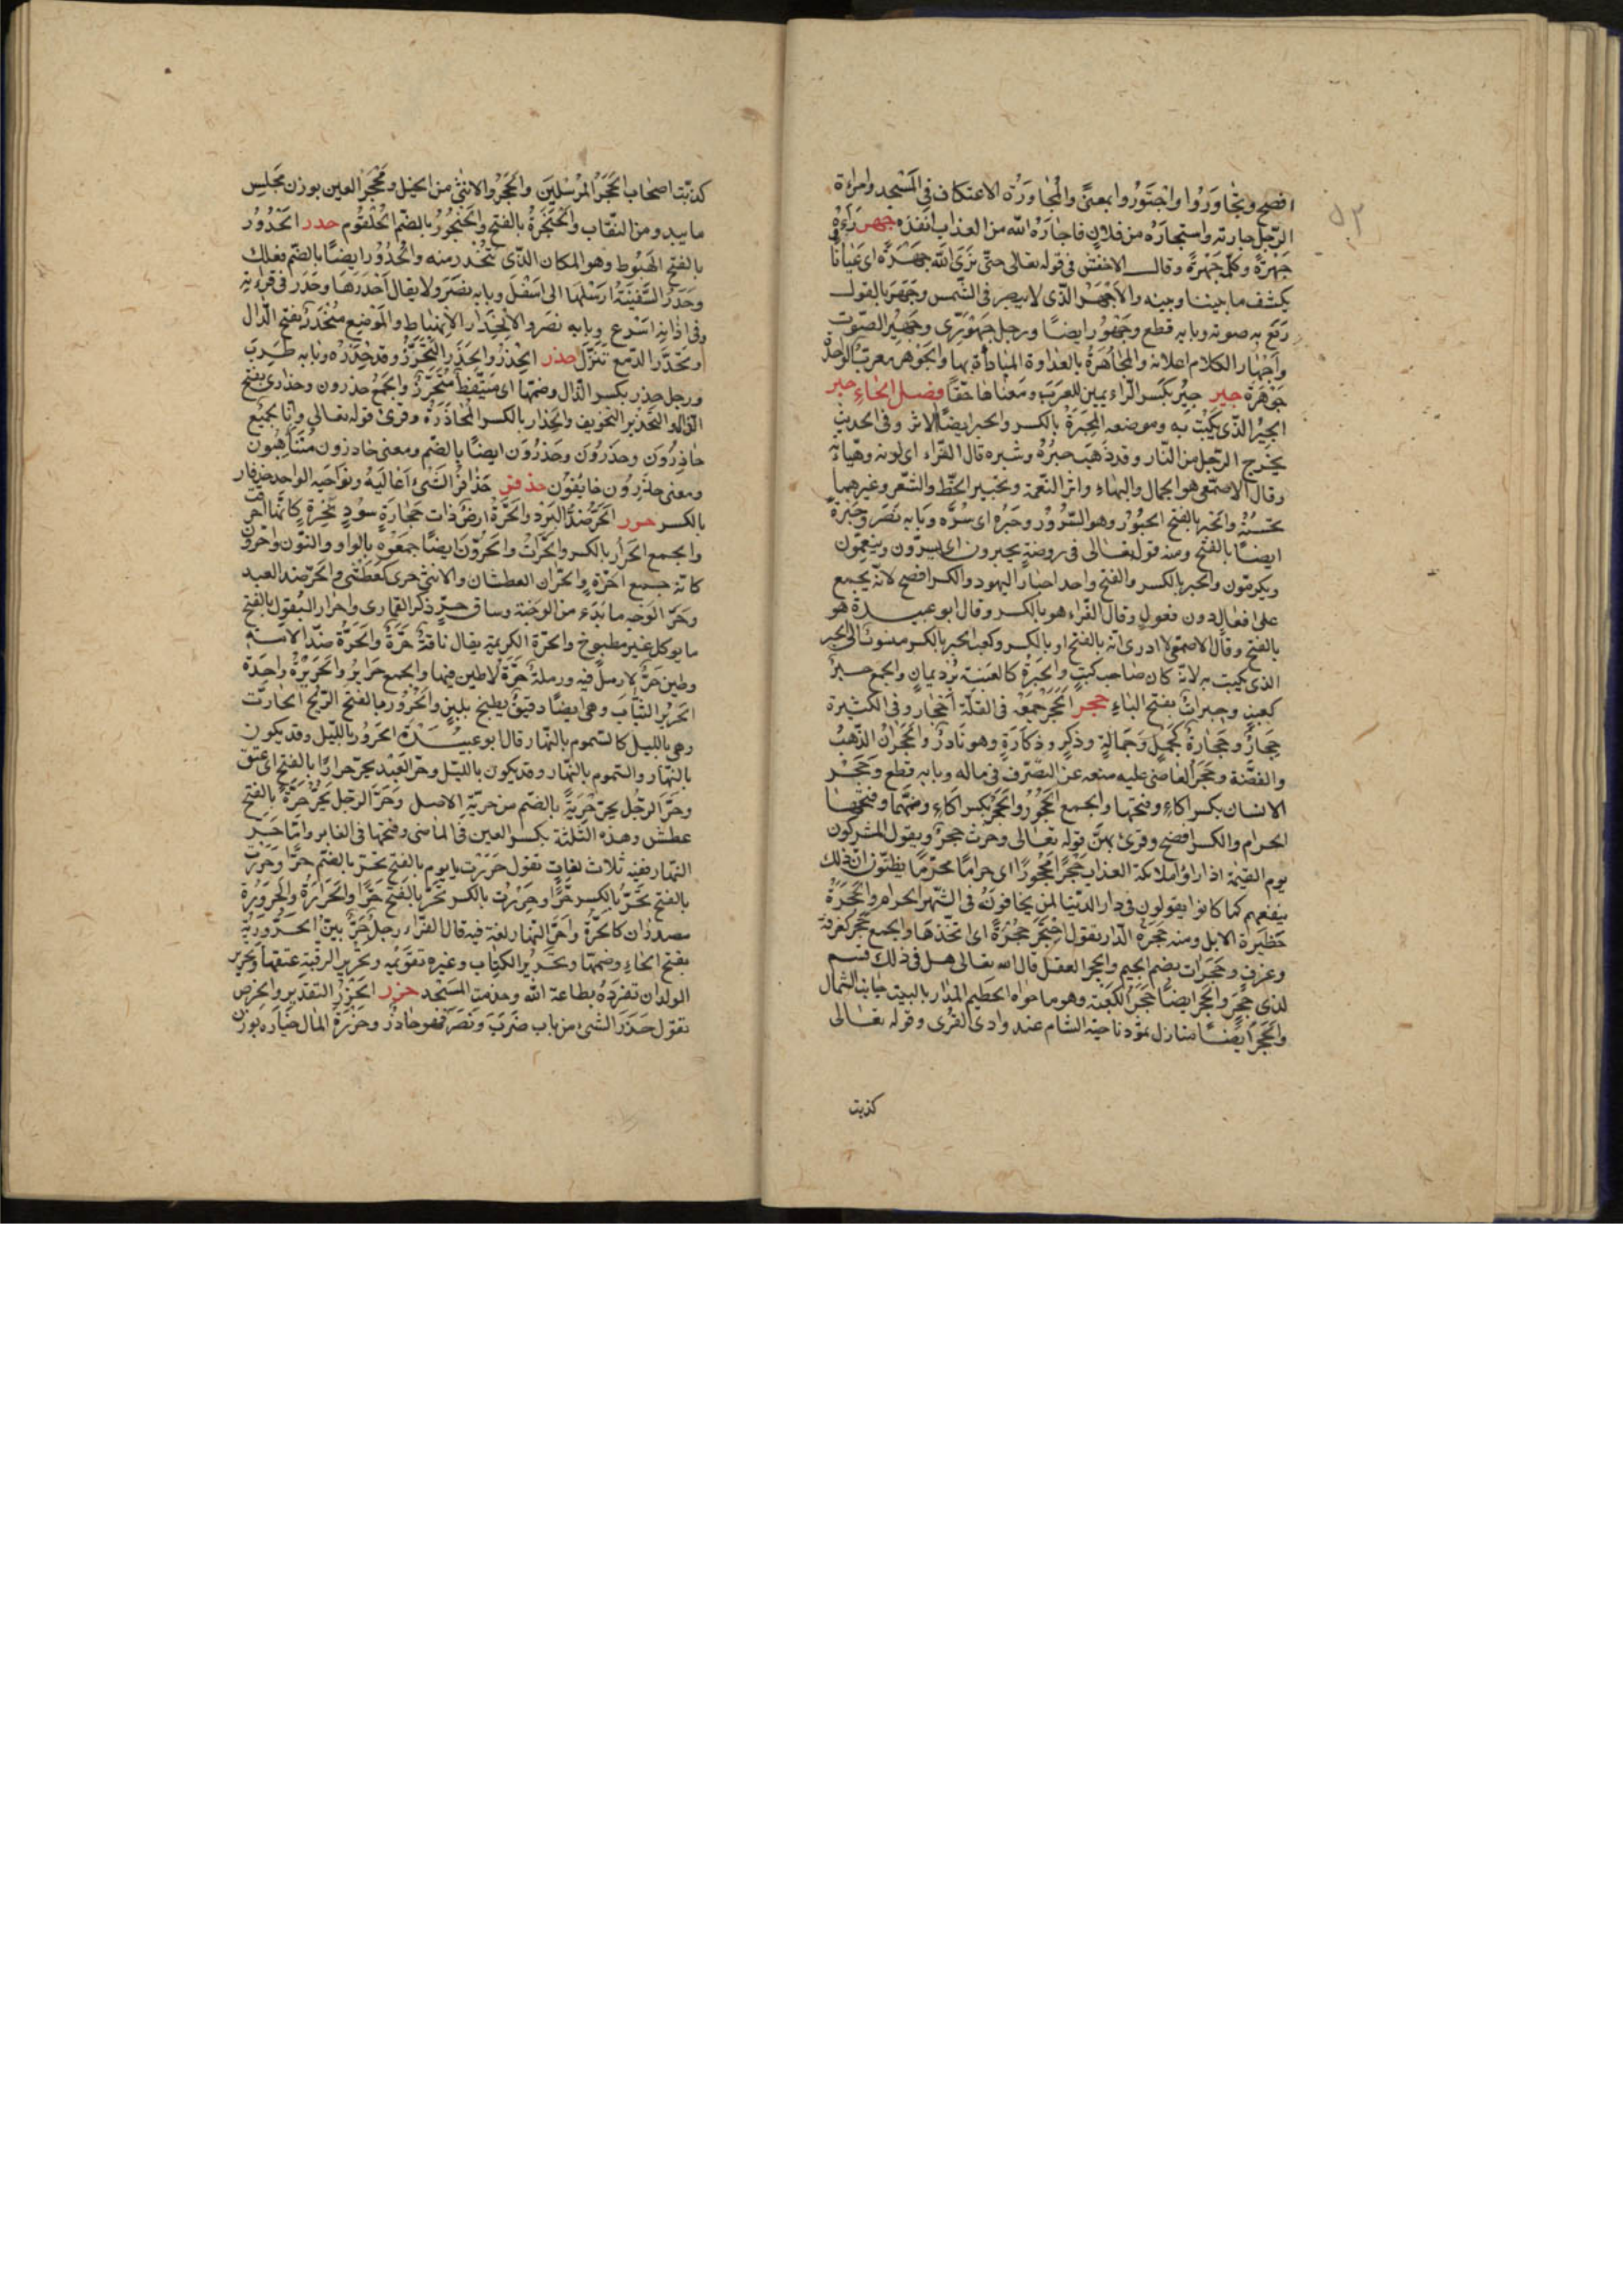 ٥٣
افصح وتجاوروا واجتوروا بمعنى والمجاورة الاعتكاف في المسجد وامراة
الرجل جارته واستجاره من فلان فاجاره الله من العذاب انقذه جهر رآه
جهرة وكلمه جهرة وقال الاخفش في قوله تعالى حتى نرى الله جهرة اى عيانا
يكشف ما بيننا وبينه والاجهر الذى لا يبصر في الشمس وجهر بالقول
رفع به صوته وبابه قطع وجهور ايضا ورجل جهورى وجهير الصوت
واجهار الكلام اعلانه والمجاهرة بالعداوة المباداة بها والجوهر معرب الواحدة
جوهرة جير جير بكسر الراء يمين للعرب ومعناها حقا فصل الحاء حبر
الحبر الذى يكتب به وموضعه المحبرة بالكسر والحبر ايضا الاثر وفى الحديث
يخرج الرجل من النار وقد ذهب حبره وسبره قال الفراء اى لونه وهيأته
وقال الاصمعى هو الجمال والبهاء واثر النعمة وتحبير الخط والشعر وغيرهما
تحسينه والحبر بالفتح الحبور وهو السرور وحبره اى سره وبابه نصر وحبرة
ايضا بالفتح ومنه قوله تعالى فى روضة يحبرون اى يسرون وينعمون
ويكرمون والحبر بالكسر والفتح واحد احبار اليهود والكسر افصح لانه يجمع
على افعال دون فعول وقال الفراء هو بالكسر وقال ابو عبيدة هو
بالفتح وقال الاصمعى لا ادرى انه بالفتح او بالكسر وكعب الحبر بالكسر منسوب الى الحبر
الذى يكتب به لانه كان صاحب كتب والحبرة كالعنبة برد يمان والجمع حبر
كعنب وحبرات بفتح الباء حجر الحجر جمعه فى القلة احجار وفى الكثيرة
حجار وحجارة كجمل وجمالة وذكر وذكارة وهو نادر والحجران الذهب
والفضة وحجر القاضى عليه منعه عن التصرف فى ماله وبابه قطع وحجر
الانسان بكسر الحاء وفتحها والجمع الحجور والحجر بكسر الحاء وضمها وفتحها
الحرام والكسر افصح وقرئ بهن قوله تعالى وحرث حجر ويقول المشركون
يوم القيمة اذا راوا ملائكة العذاب حجرا محجورا اى حراما محرما يظنون ان ذلك
ينفعهم كما كانوا يقولون فى دار الدنيا لمن يخافونه فى الشهر الحرام والحجرة
حظيرة الابل ومنه حجرة الدار تقول احتجر حجرة اى اتخذها والجمع حجر كغرفة
وغرف وحجرات بضم الجيم والحجر العقل قال الله تعالى هل فى ذلك قسم
لذى حجر والحجر ايضا حجر الكعبة وهو ما حواه الحطيم المدار بالبيت جانب الشمال
والحجر ايضا منازل ثمود ناحية الشام عند وادى القرى وقوله تعالى
كذبت
كذبت اصحاب الحجر المرسلين والحجر والانثى من الخيل ومحجر العين بوزن مجلس
ما يبدو من النقاب والحنجرة بالفتح والحنجور بالضم الحلقوم حدر الحدور
بالفتح الهبوط وهو المكان الذى تنحدر منه والحدور ايضا بالضم فعلك
وحدر السفينة ارسلها الى اسفل وبابه نصر ولا يقال احدرها وحدر فى قرآته
وفى اذانه اسرع وبابه نصر والانحدار الانهباط والموضع منحدر بفتح الدال
وتحدر الدمع تنزل حذر الحذر والحذر التحرز وقد حذره وبابه طرب
ورجل حذر بكسر الذال وضمها اى متيقظ متحرز والجمع حذرون وحذارى بفتح
الراء والتحذير التخويف والحذار بالكسر المحاذرة وقرئ قوله تعالى وانا لجميع
حاذرون وحذرون وحذرون ايضا بالضم ومعنى حاذرون متأهبون
ومعنى حذرون خائفون حذفر حذافير الشئ اعاليه ونواحيه الواحد حذفار
بالكسر حرر الحر ضد البرد والحرة ارض ذات حجارة سود نخرة كانها احرقت
والجمع الحرار بالكسر والحرات والحرون ايضا جمعوه بالواو والنون واحرون
كانه جمع احرة والحران العطشان والانثى حرى كعطشى والحر ضد العبد
وحر الوجه ما بدء من الوجنة وساق حر ذكر القمارى واحرار البقول بالفتح
ما يوكل غير مطبوخ والحرة الكريمة يقال ناقة حرة والحرة ضد الامة
وطين حر لا رمل فيه ورملة حرة لا طين فيها والجمع حراير والحريرة واحدة
الحرير الثياب وهى ايضا دقيق يطبخ بلبن والحرور بالفتح الريح الحارة
وهى بالليل كالسموم بالنهار قال ابو عبيدة الحرور بالليل وقد يكون
بالنهار والسموم بالنهار وقد يكون بالليل وحر العبد يحر حرارا بالفتح اى عتق
وحر الرجل يحر حرية بالضم من حرية الاصل وحر الرجل يحر حرة بالفتح
عطش وهذه الثلثة بكسر العين فى الماضى وفتحها فى الغابر واما حر
النهار ففيه ثلاث لغات تقول حررت يا يوم بالفتح تحر بالضم حرا وحررت
بالفتح تحر بالكسر حرا وحررت بالكسر تحر بالفتح حرا والحرارة والحرورة
مصدران كالحرة واحر النهار لغة فيه قال الفراء رجل حر بين الحرورية
بفتح الحاء وضمها وتحرير الكتاب وغيره تقويمه وتحرير الرقبة عتقها وتحرير
الولد ان تفرده بطاعة الله وخدمة المسجد حزر الحزر التقدير والخرص
تقول حزر الشئ من باب ضرب ونصر فهو حازر وحزرة المال خياره بوزن